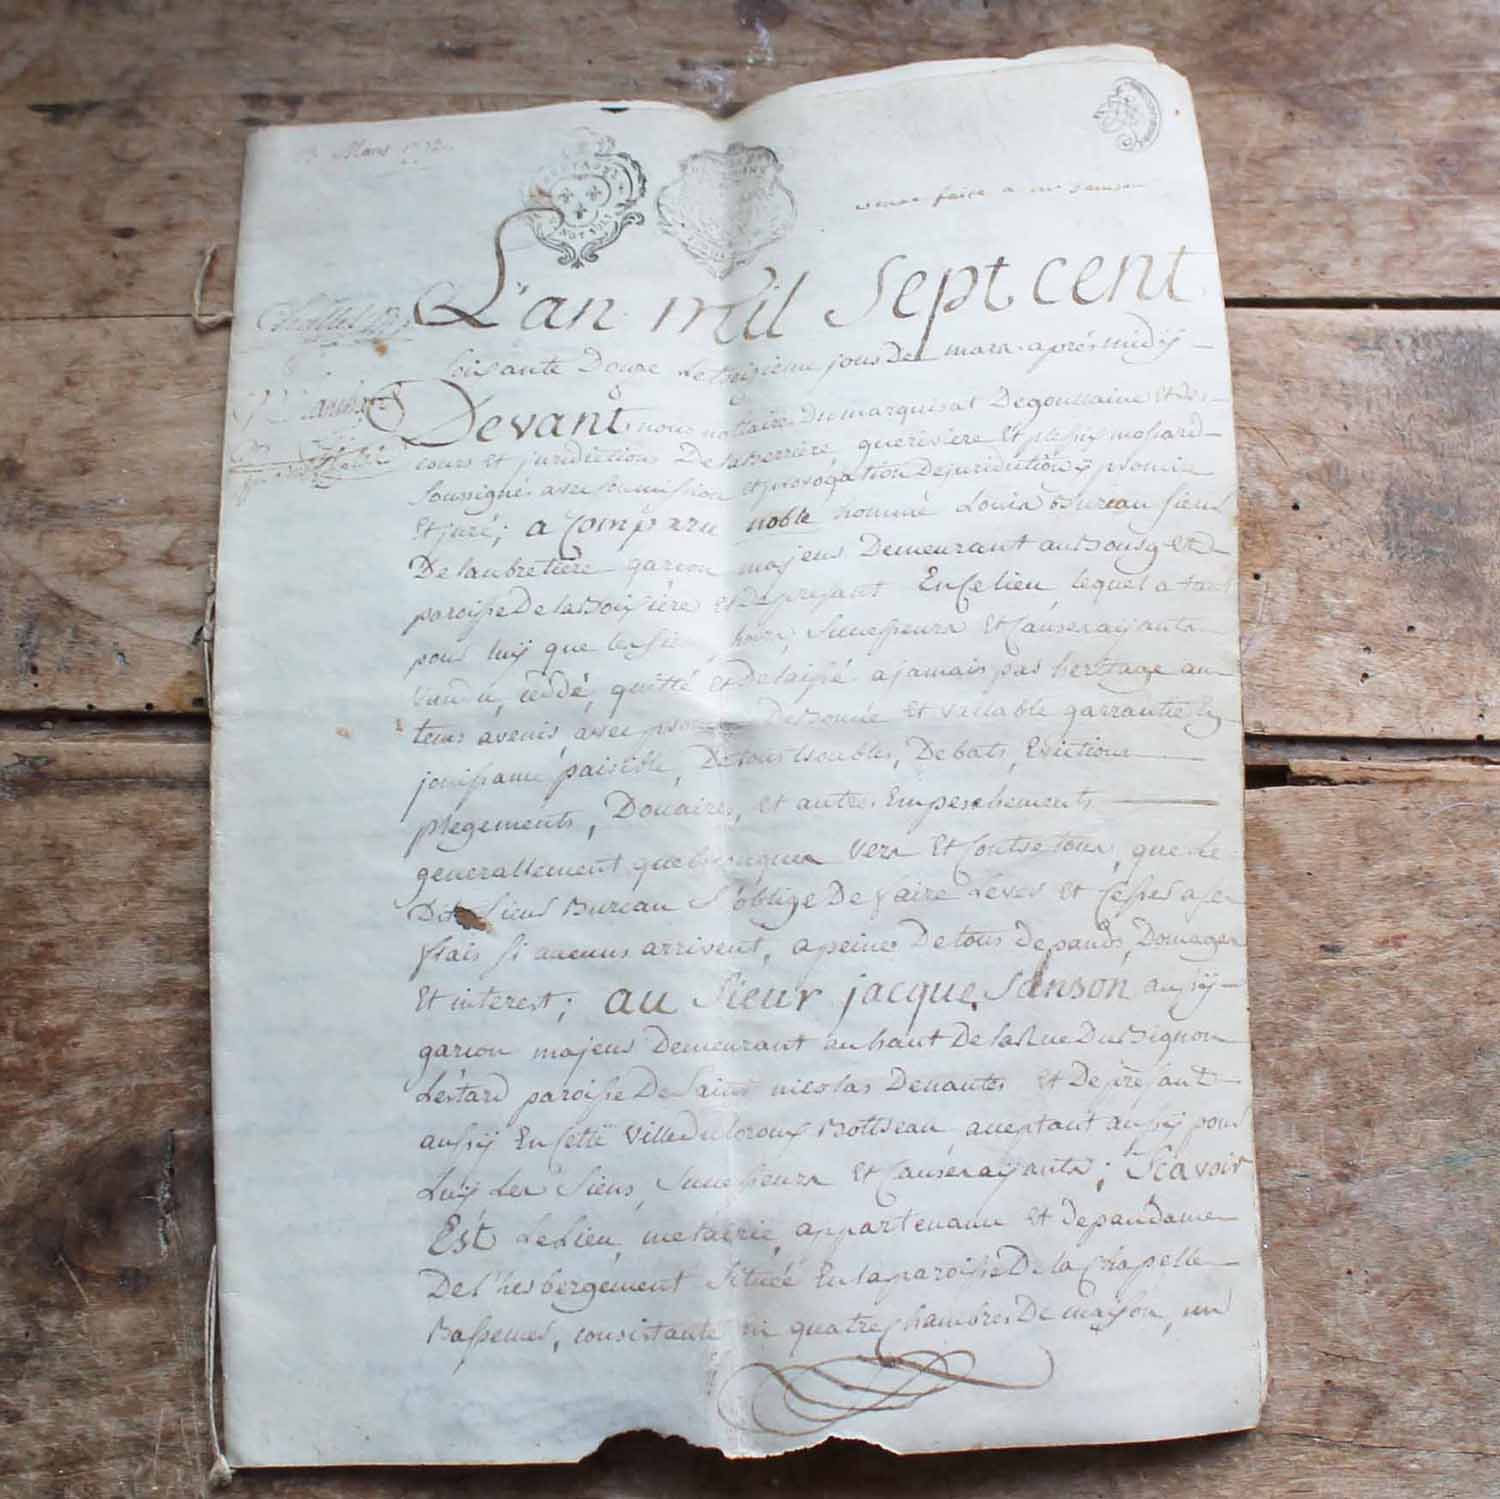 3 Mars 1772
vente faite a mr sanson
L'an mil Sept cent
soixante Douze Le troizieme jour De mars après midÿ
Devant nous nottaires Du marquisat De goullaine et des
cours et juridictions De laberriere, queriviere et plessix
soussignés avec soumission et prorogation De juridiction ÿ promise
Et juré; a comparu noble homme Louis Bureau sieur
De laubretiere garcon majeur Demeurant au Bourg et
paroisse De la Boissiere et De present En ce lieu lequel a tant
pour luÿ que les siens hoirs, successeurs et causeaÿants
vandu, ceddé, quitté et Delaissé ajamais par heritage au
tems avenir avec promesse De Bonne et vallable garrantie et
jouissance paisible, De tous troubles, Debats, Evictions
plegements, Doüaires, et autres Empeschements
generallement quelconques vers et contre tous, que le
Dit sieur Bureau s'oblige De faire Lever et cesser a ses
frais si aucuns arrivent, a peine De tous depands, Domages
Et interest; au Sieur jacque Sanson aussÿ
garcon majeur Demeurant au haut De la Rue Du Bignon
Lestard paroisse De Saint nicolas De nantes et De present
aussÿ En cette ville Du Botereau acceptant aussÿ pour
Luÿ Les siens, successeurs et causeaÿants; Scavoir
Est Le Lieu, metairie, appartenance et dependances
De l'hesbergement située En la paroisse De la chapelle
Bassemer, consistante en quatre chambres De maison, un